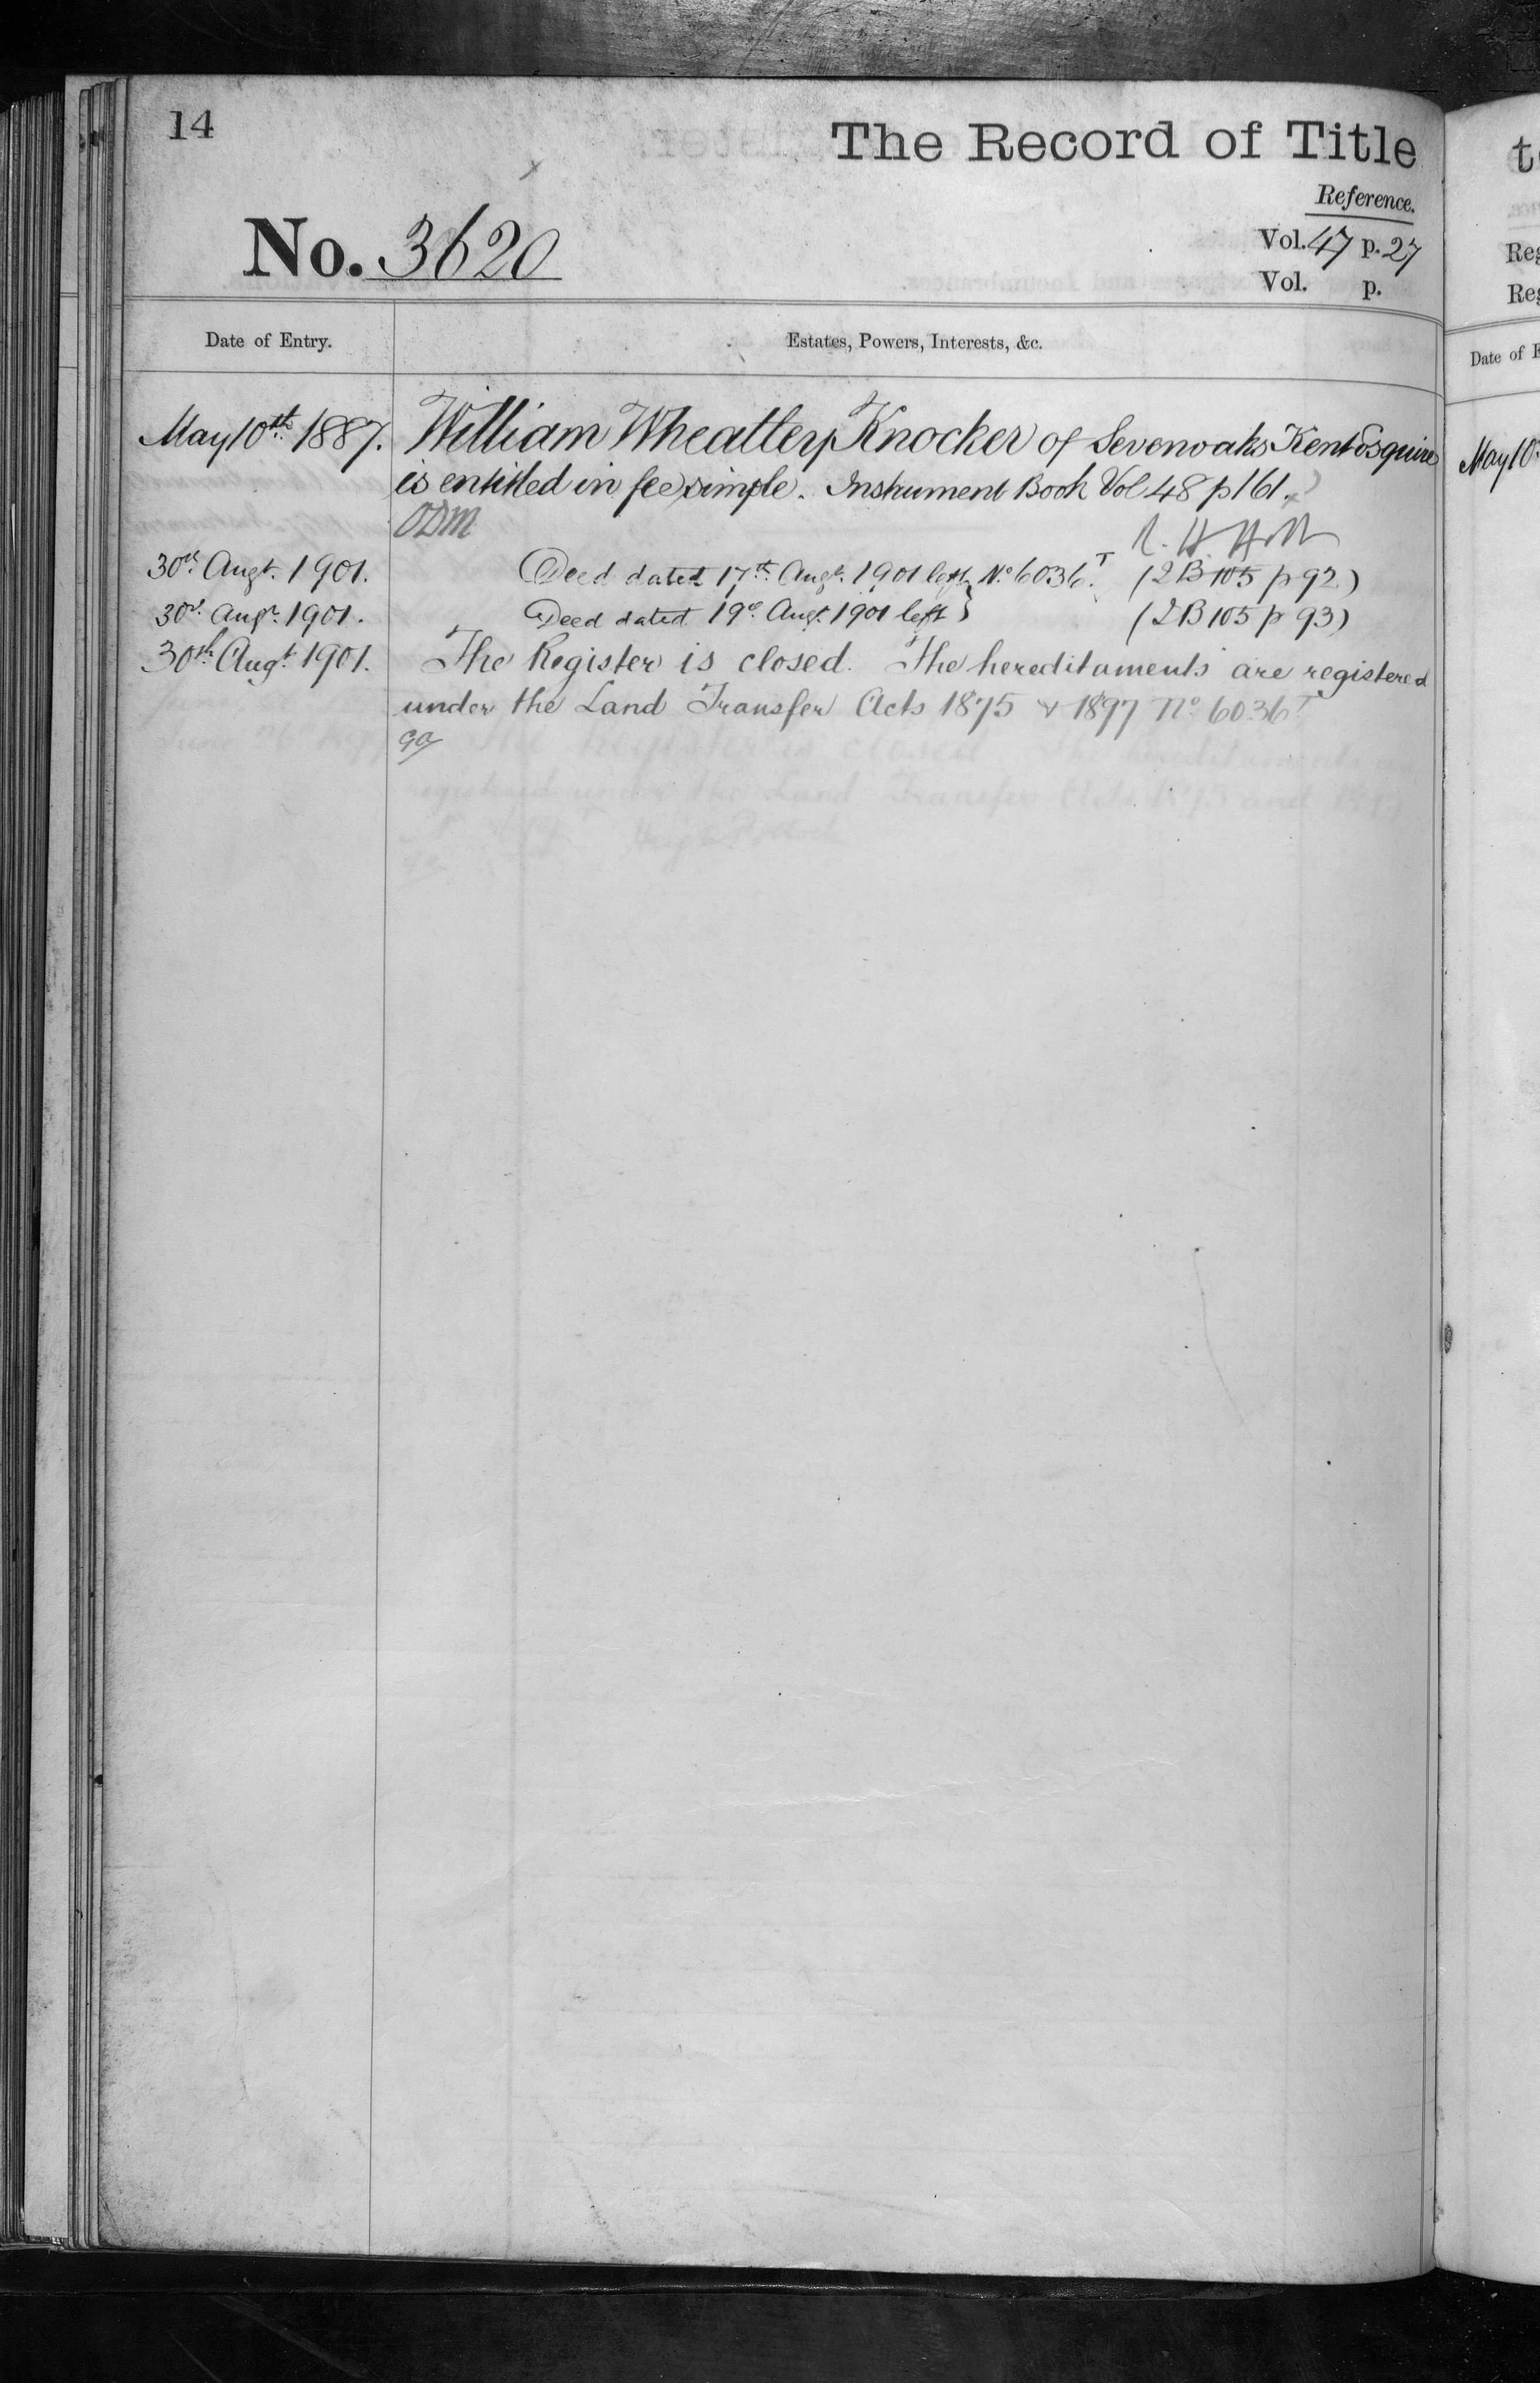 14
The Record of Title
Reference.
No. 3620
Vol. 47 p. 27
Vol. p.
Date of Entry.
Estates, Powers, Interests, &c.
May 10th 1887.
William Wheatley Knocker of Sevenoaks Kent Esquire
is entitled in fee simple. Instrument Book Vol 48 p 161.
ODM
30th Augt. 1901.
Deed dated 17th Augt. 1901 left } No 6036T. (2B 105 p 92)
30th Augt. 1901.
Deed dated 19th Augt. 1901 left } (2B 105 p 93)
30th Augt. 1901.
The Register is closed. The hereditaments are registered
under the Land Transfer Acts 1875 & 1897 No 6036T
ga
Date of
May 10